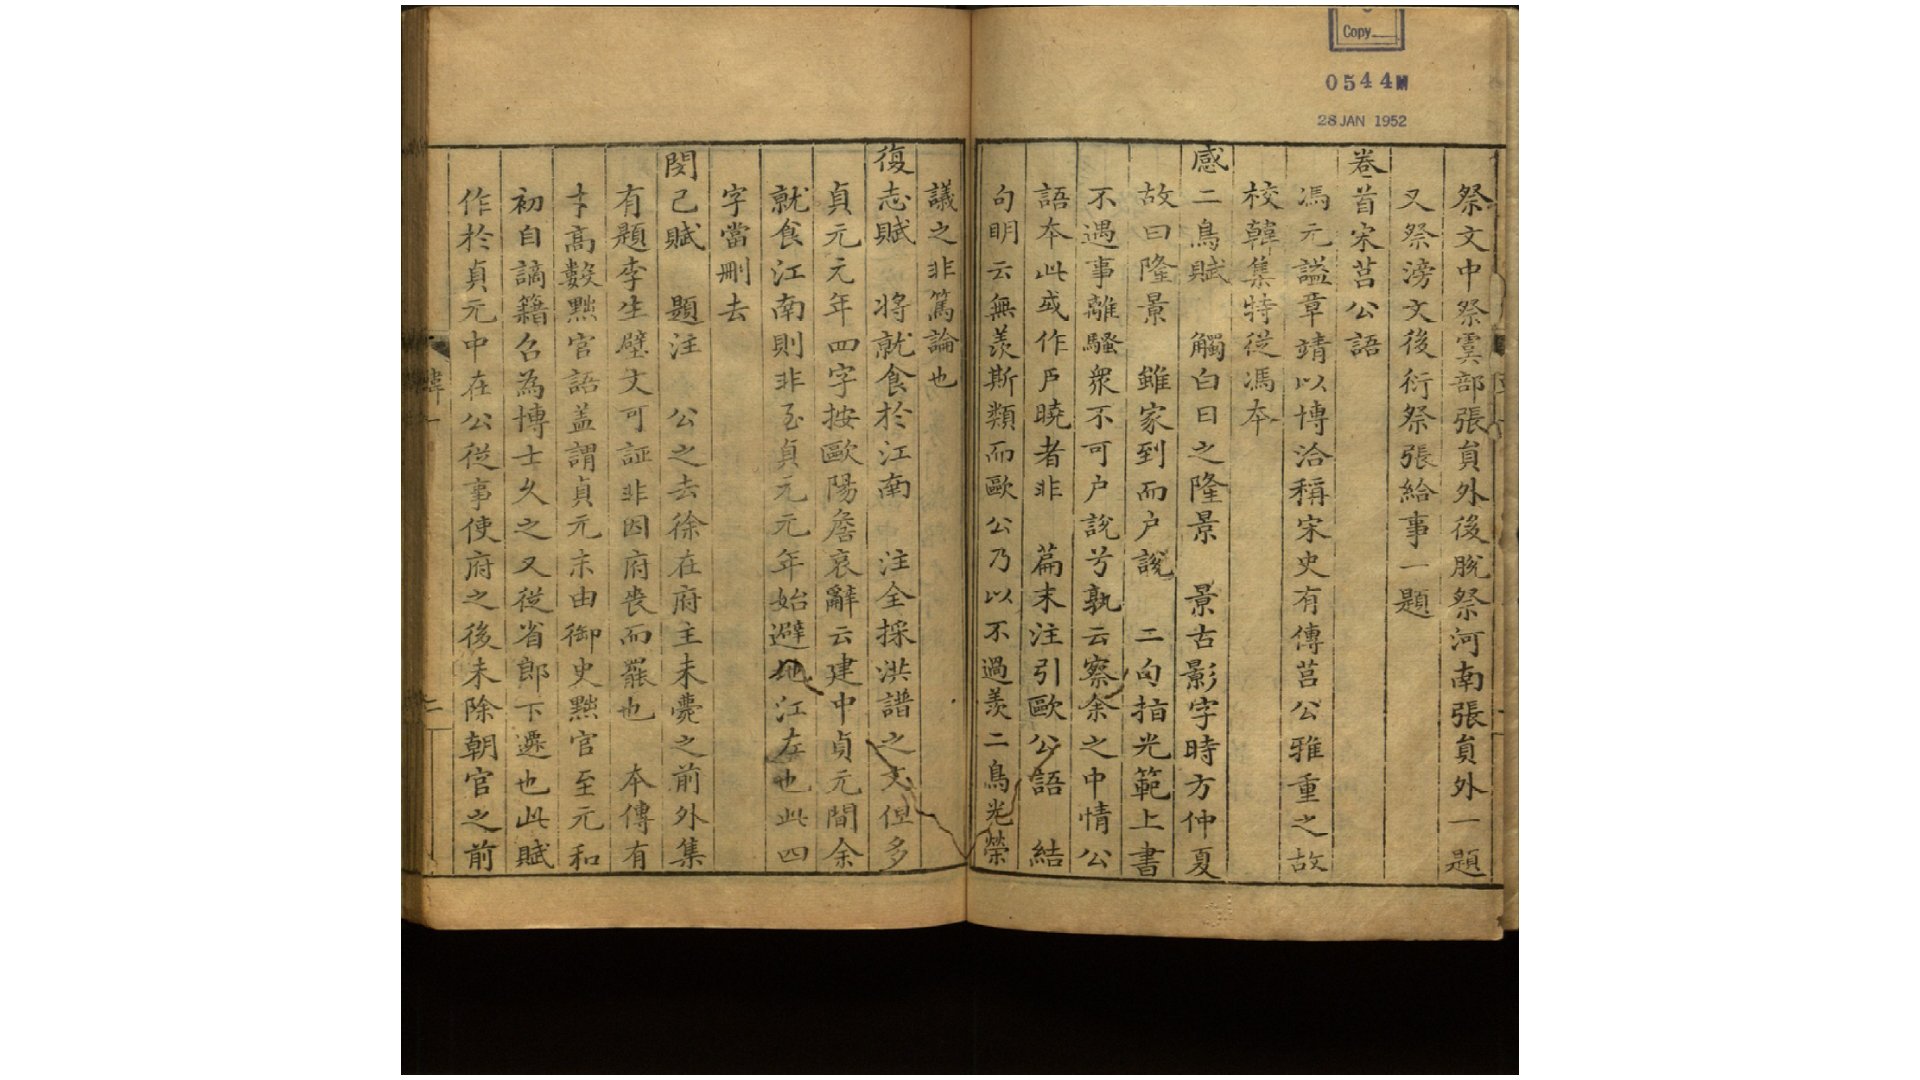 Copy
0544
28 JAN 1952
祭文中祭虞部張員外後脫祭河南張員外一題
又祭滂文後衍祭張給事一題
卷首宋莒公語
馮元謚章靖以博洽稱宋史有傳莒公雅重之故
校韓集特從馮本
感二鳥賦 觸白日之隆景 景古影字時方仲夏
故曰隆景 雖家到而户說 二句指光範上書
不遇事離騷衆不可户說兮孰云察余之中情公
語本此或作戶曉者非 篇末注引歐公語 結
句明云無羨斯類而歐公乃以不過羨二鳥光榮
議之非篤論也
復志賦 將就食於江南 注全採洪譜之文但多
貞元元年四字按歐陽詹哀辭云建中貞元間余
就食江南則非至貞元元年始避地江左也此四
字當刪去
閔己賦 題注 公之去徐在府主未薨之前外集
有題李生壁文可証非因府喪而罷也 本傳有
才高數黜官語蓋謂貞元末由御史黜官至元和
初自謫籍召為博士久之又從省郎下遷也此賦
作於貞元中在公從事使府之後未除朝官之前
韓一
二